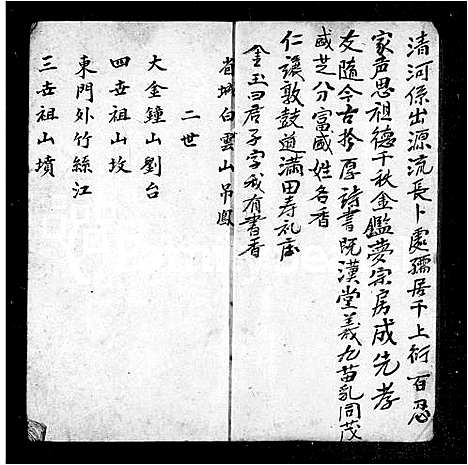 清河係出源流長卜處孺居千上衍百忍
家声思祖德千秋金鑑夢宗房成先孝
友隨今古拎厚詩書既漢堂義九苗乳同茂
盛芝分富盛姓各香
仁讓敦鼓道滿田寿礼庄
金玉曰君子字我有書香
省城白雲山吊鳳
二世
大金鐘山劉台
四世祖山坟
東門外竹絲江
三世祖山墳